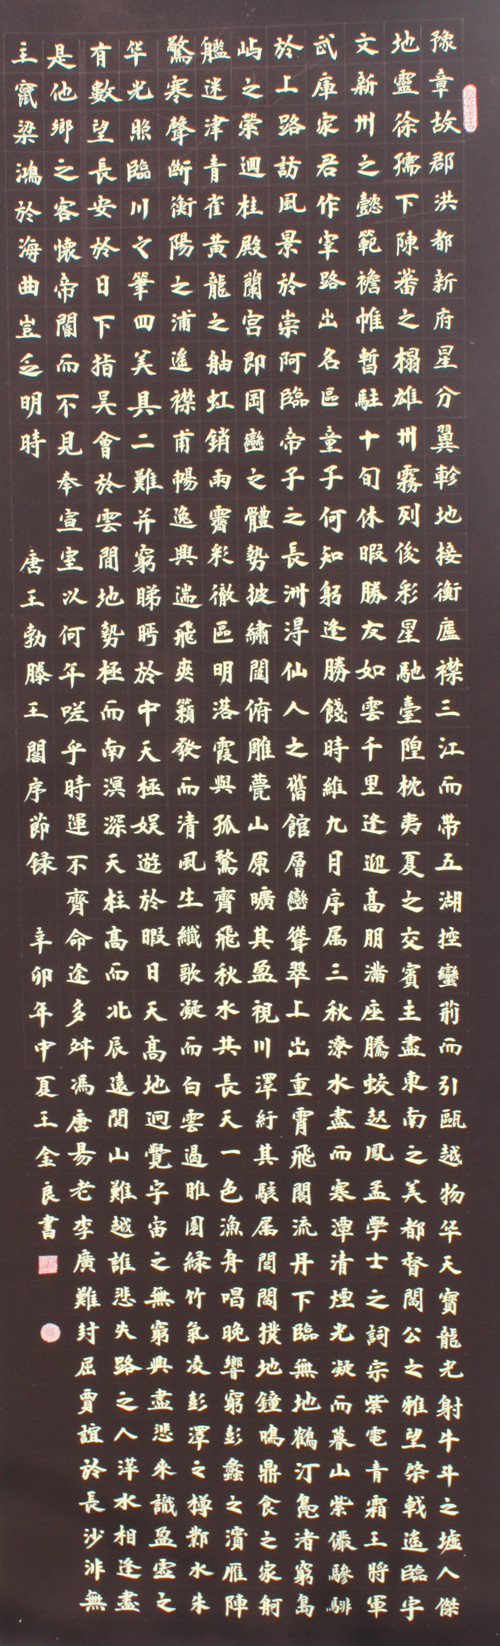 豫章故郡洪都新府星分翼軫地接衡廬襟三江而帶五湖控蠻荊而引甌越物华天寶龍光射牛斗之墟人傑
地靈徐孺下陳蕃之榻雄州霧列俊彩星馳臺隍枕夷夏之交賓主盡東南之美都督閻公之雅望棨戟遙臨宇
文新州之懿範襜帷暫駐十旬休暇勝友如雲千里逢迎高朋滿座騰蛟起鳳孟學士之詞宗紫電青霜王將軍
武庫家君作宰路出名區童子何知躬逢勝餞時維九月序属三秋潦水盡而寒潭清煙光凝而暮山紫儼驂騑
於上路訪風景於崇阿臨帝子之長洲得仙人之舊館層巒聳翠上出重霄飛閣流丹下臨無地鶴汀鳧渚窮島
屿之縈迴桂殿蘭宫即岡巒之體勢披繡闥俯雕甍山原曠其盈視川澤紆其駭属閭閻撲地鐘鳴鼎食之家舸
艦迷津青雀黃龍之舳虹銷雨霽彩徹區明落霞與孤鶩齊飛秋水共長天一色漁舟唱晚響窮彭蠡之濱雁陣
驚寒聲斷衡陽之浦遙襟甫暢逸興遄飛爽籟發而清風生纖歌凝而白雲遏睢園綠竹氣凌彭澤之樽鄴水朱
华光照臨川之筆四美具二難并窮睇眄於中天極娛遊於暇日天高地迥覺宇宙之無窮興盡悲來識盈虛之
有數望長安於日下指吳會於雲間地勢極而南溟深天柱高而北辰遠関山難越誰悲失路之人萍水相逢盡
是他鄉之客懷帝閽而不見奉宣室以何年嗟乎時運不齊命途多舛馮唐易老李廣難封屈賈誼於長沙非無
主竄梁鴻於海曲豈乏明時 唐王勃滕王閣序節録 辛卯年中夏王金良書